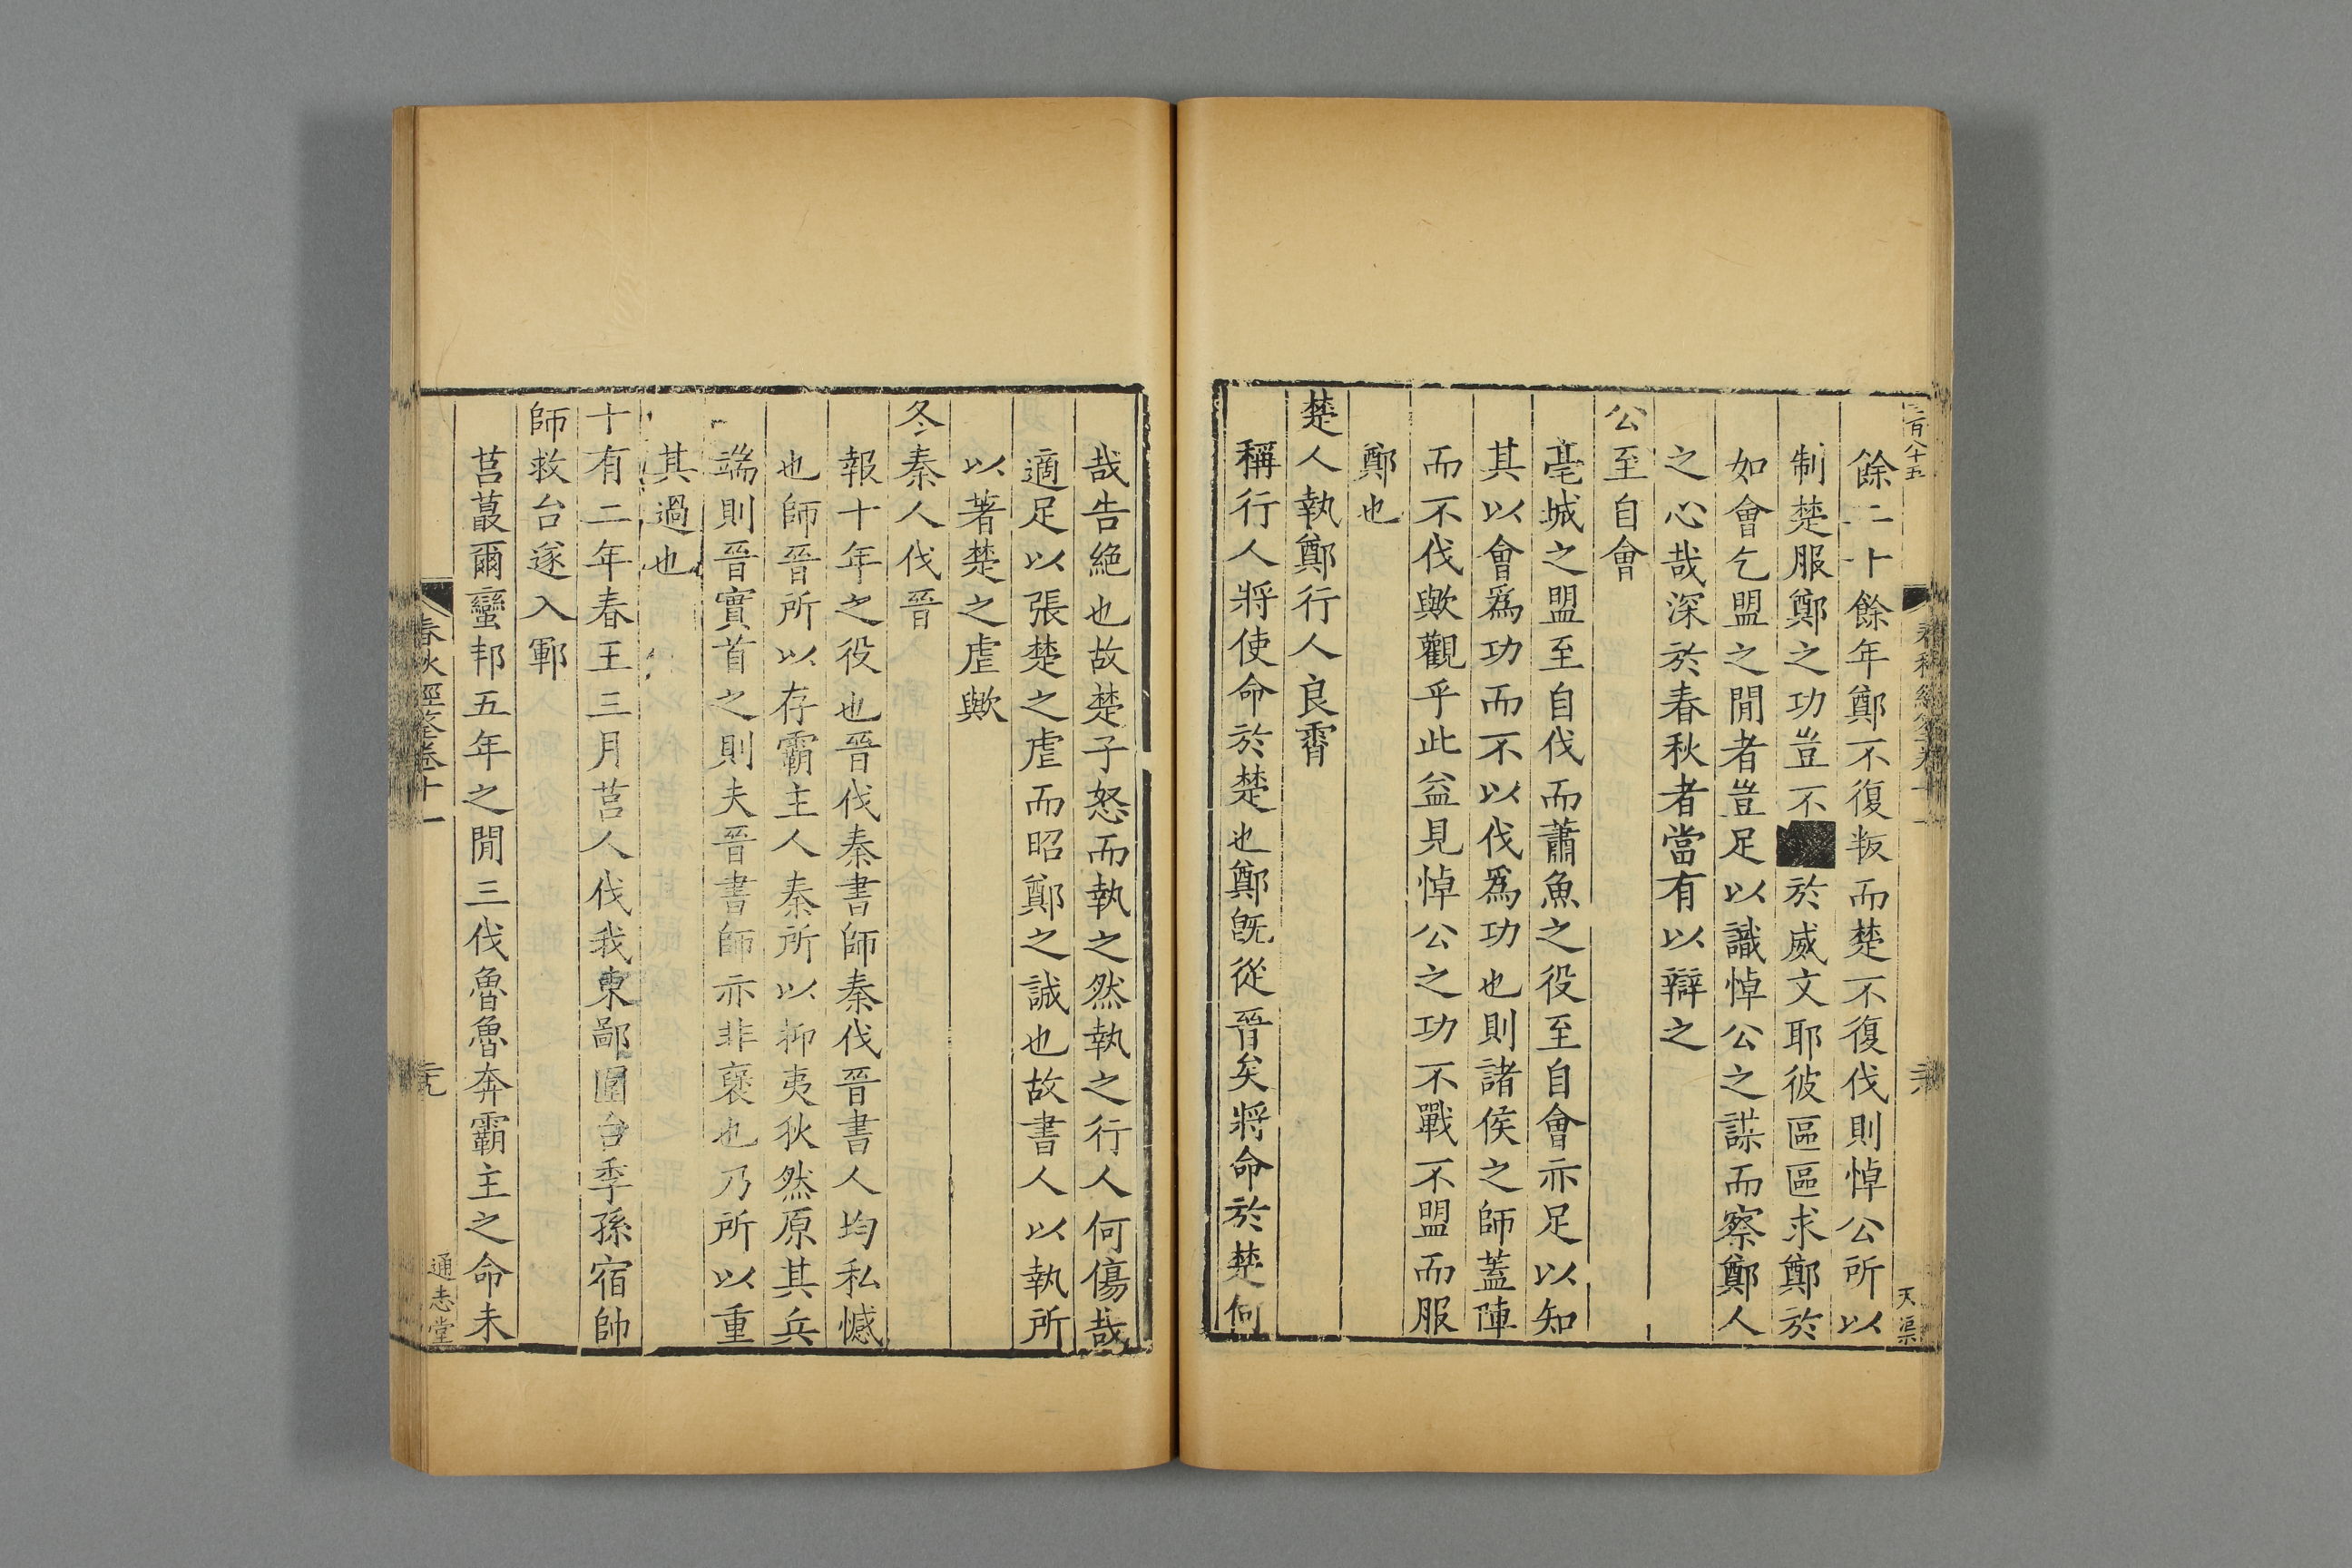 餘二十餘年鄭不復叛而楚不復伐則悼公所以
制楚服鄭之功豈不■於威文耶彼區區求鄭於
如會乞盟之閒者豈足以識悼公之謀而察鄭人
之心哉深於春秋者當有以辯之
公至自會
亳城之盟至自伐而蕭魚之役至自會亦足以知
其以會爲功而不以伐爲功也則諸侯之師蓋陣
而不伐歟觀乎此益見悼公之功不戰不盟而服
鄭也
楚人執鄭行人良霄
稱行人將使命於楚也鄭旣從晉矣將命於楚何
哉告絕也故楚子怒而執之然執之行人何傷哉
適足以張楚之虐而昭鄭之誠也故書人以執所
以著楚之虐歟
冬秦人伐晉
報十年之役也晉伐秦書師秦伐晉書人均私憾
也師晉所以存霸主人秦所以抑夷狄然原其兵
端則晉實首之則夫晉書師亦非襃也乃所以重
其過也
十有二年春王三月莒人伐我東鄙圍台季孫宿帥
師救台遂入鄆
莒蕞爾蠻邦五年之閒三伐魯魯奔霸主之命未
春秋經筌卷十一
通志堂